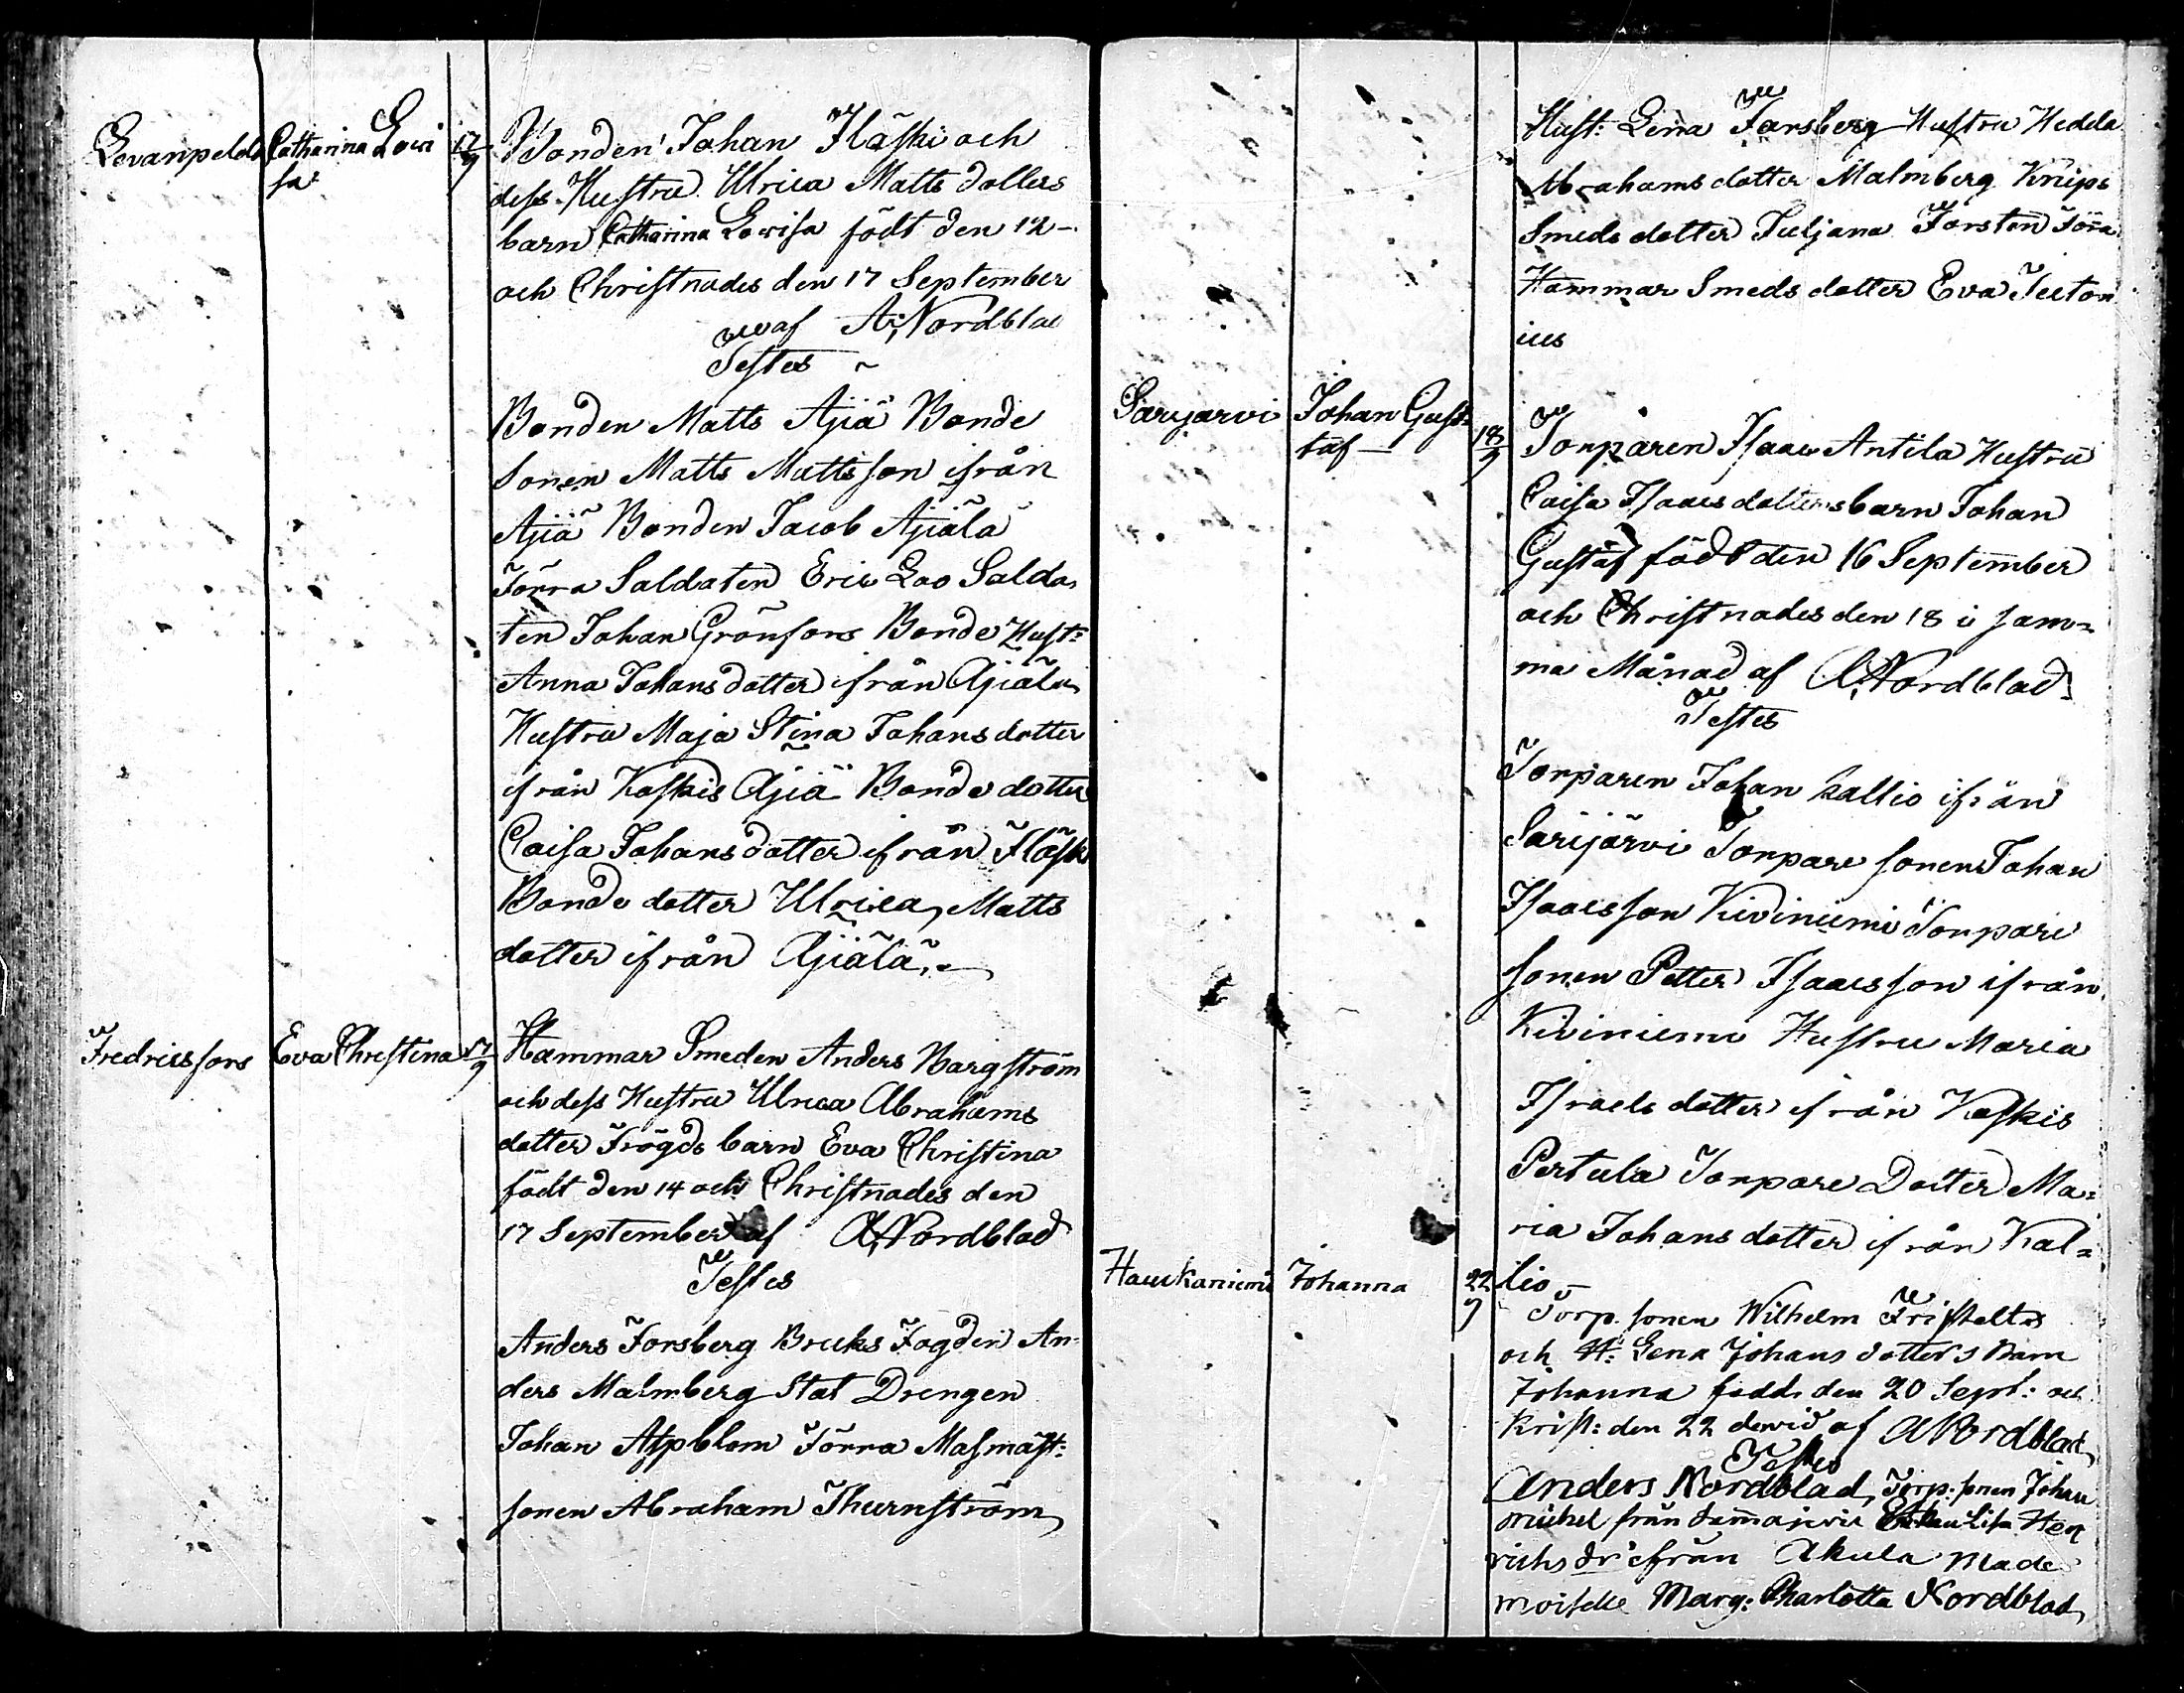 Levanpeldo Catharina Lowi
sa
17/9
Bonden Johan Fläski och
dess Hustru Ulrica Matts dotters
barn Catharina Lowisa födt den 12-
och Christnades den 17 September
af A. Nordblad
Testes
Bonden Matts Äjiä Bonde
sonen Matts Mattsson ifrån
Äjiä Bonden Jacob Äjiälä
Förra Soldaten Eric Loo Solda
ten Johan Grönfors Bonde Hust:
Anna Johans dotter ifrån Äjiälä
Hustru Maja Stina Johans dotter
ifrån Koskis Äjiä Bonde dotter
Caisa Johans dotter ifrån Fläski
Bonde dotter Ulrica Matts
dotter ifrån Äjiälä.
Fredricsfors Eva Christina 17/9
Hammar Smeden Anders Bargström
och dess Hustru Ulrica Abrahams
dotter Frögds barn Eva Christina
födt den 14 och Christnades den
17 September af A. Nordblad
Testes
Anders Forsberg Bruks Fogden An-
ders Malmberg Stat Drengen
Johan Aspblom Förra Masmäst:
sonen Abraham Thurnström
Hust: Lena Forsberg Hustru Hedda
Abrahams dotter Malmberg Knips
Smeds dotter Juljana Forsten Förra
Hammar Smeds dotter Eva Teeton
ius
Saryarvi Johan Gust=
taf —
18/9
Torparen Isaac Antila Hustru
Caisa Isaacs dotters barn Johan
Gustaf född den 16 September
och Christnades den 18 i sam=
ma Månad af A. Nordblad
Testes
Torparen Johan Kallio ifrån
Sarijärvi Torpare sonen Johan
Isaacsson Kiviniemi Torpare
sonen Petter Isaacsson ifrån
Kiviniemi Hustru Maria
Israels dotter ifrån Koskis
Pertula Torpare Dotter Ma=
ria Johans dotter ifrån Kal=
lio —
Haukaniemi Johanna 22/9
Torp. sonen Wilhelm Fristelt
och H: Lena Johans dotters Barn
Johanna född den 20 Sept: och
Krist: den 22 af A Nordblad
Testes
Anders Nordblad, Torp: sonen Johan
Michel från Lisa Hen
richs dr ifrån Akula Made
moiselle Marg: Charlotta Nordblad